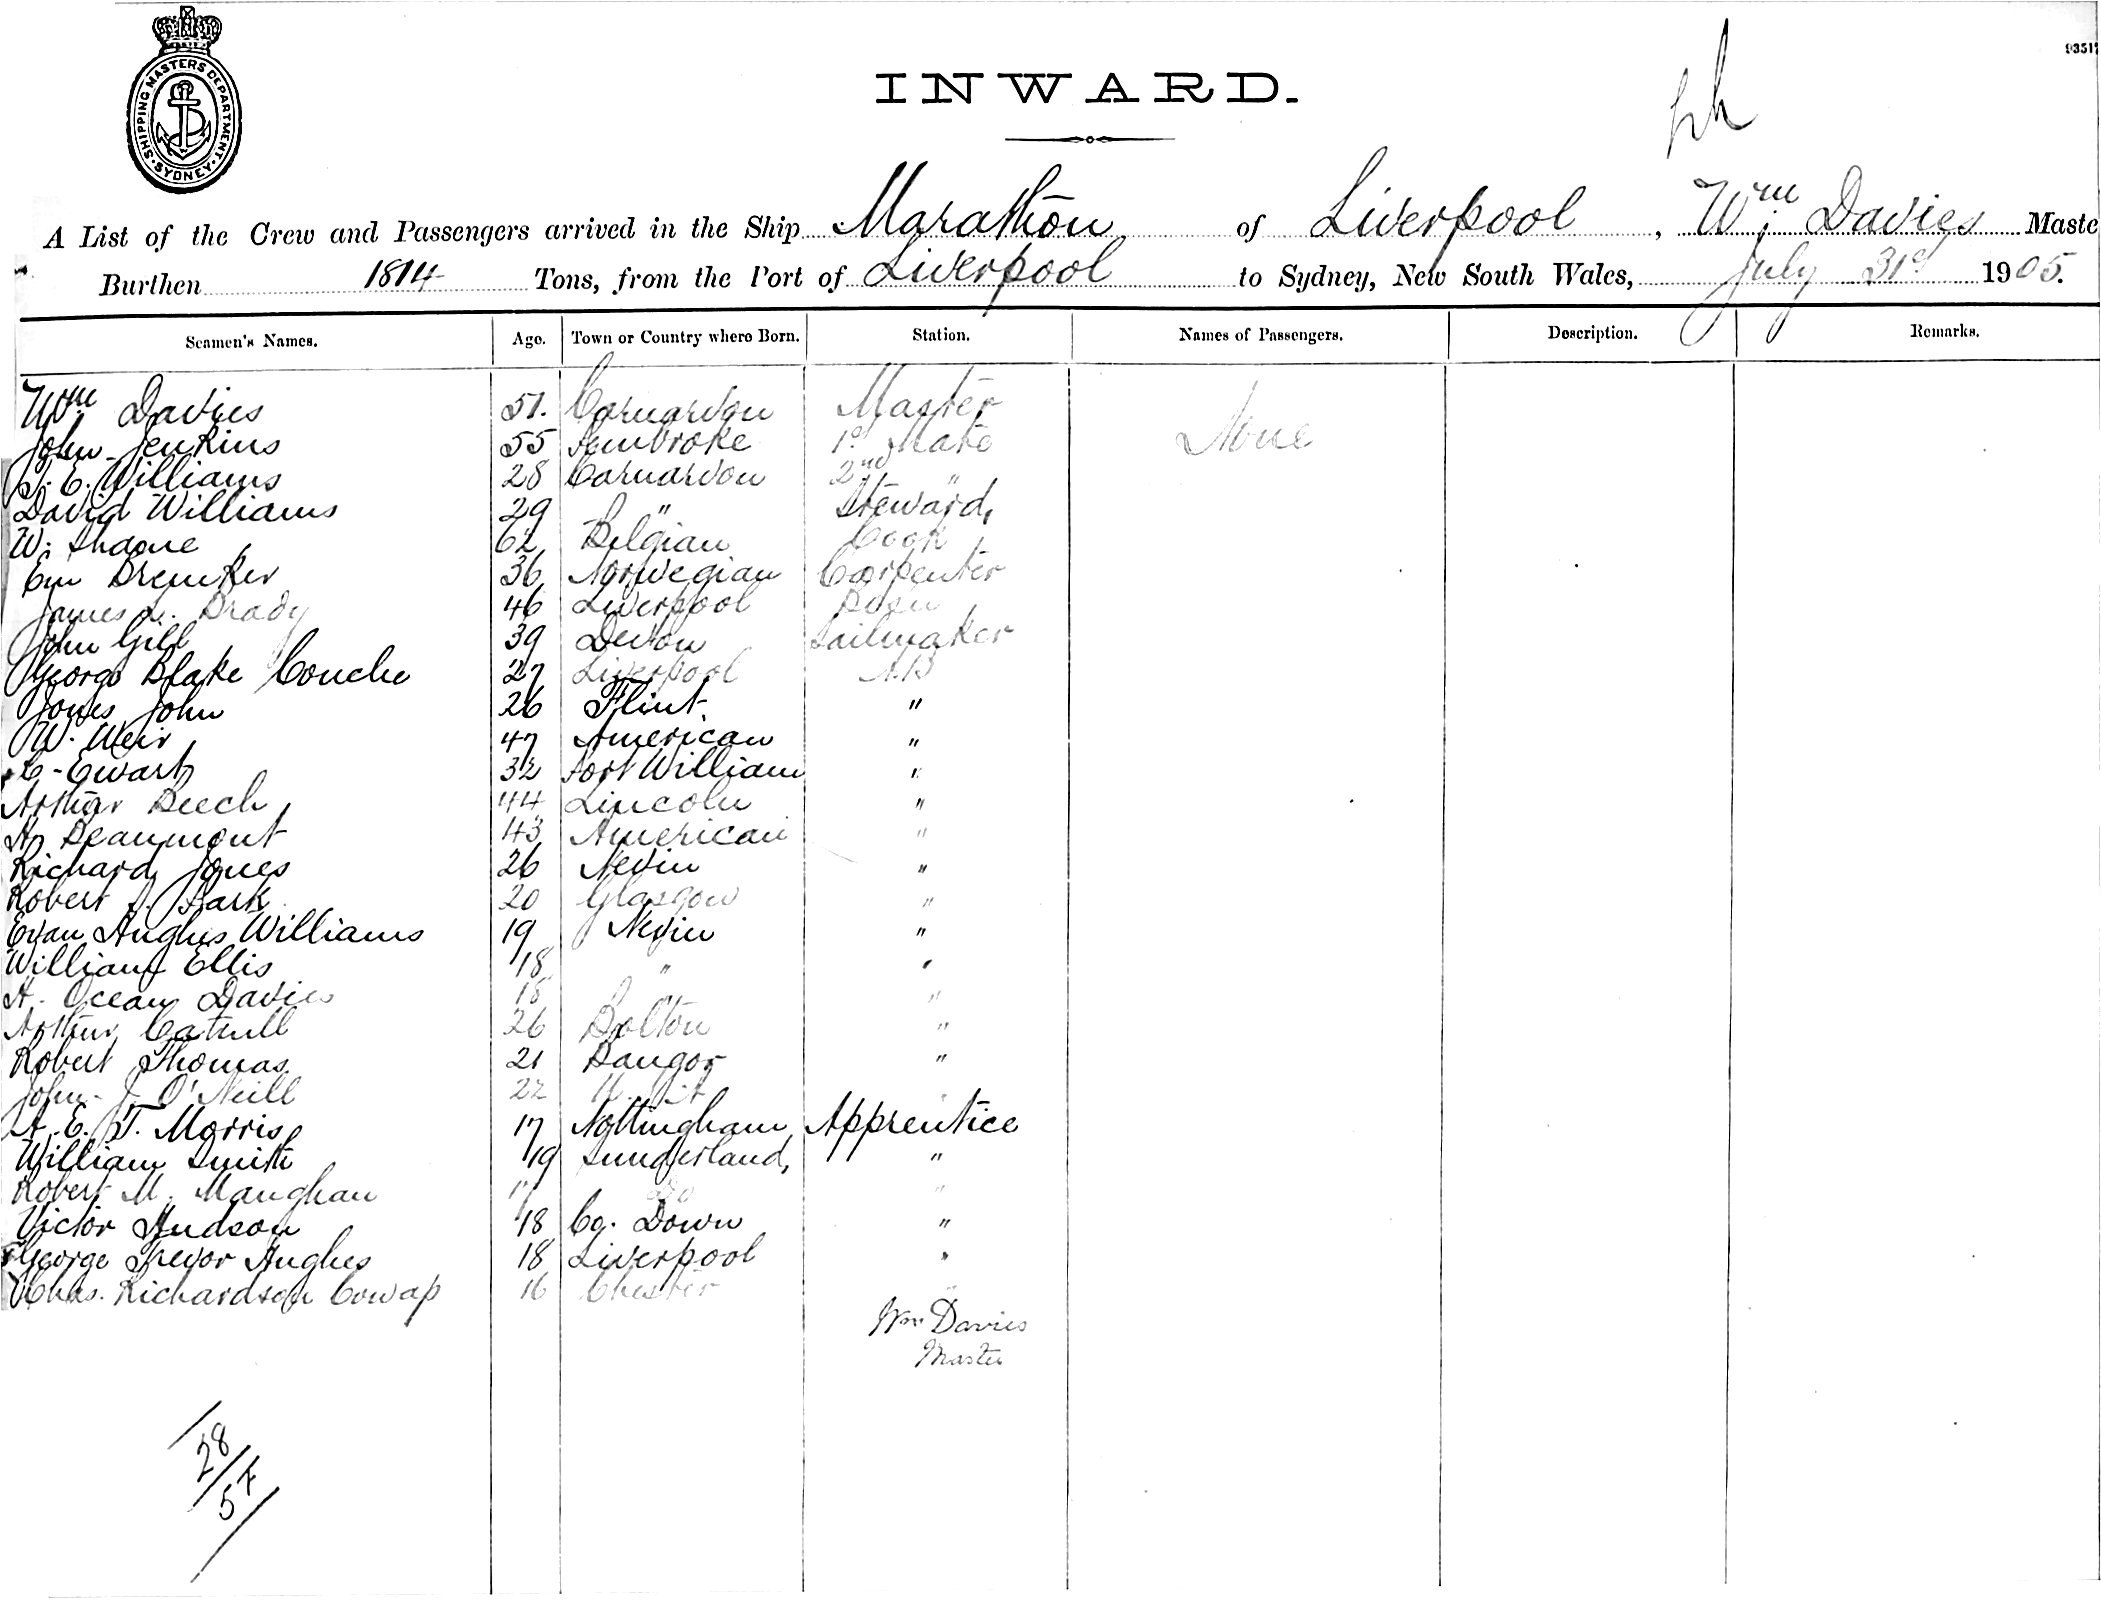 SHIPPING MASTERS DEPARTMENT SYDNEY
9351
INWARD.
A List of the Crew and Passengers arrived in the Ship Marathon of Liverpool, Wm. Davies Maste
Burthen 1814 Tons, from the Port of Liverpool to Sydney, New South Wales, July 31st 1905.
Seamen's Names. Age. Town or Country where Born. Station. Names of Passengers. Description. Remarks.
Wm Davies 51. Carnarvon Master
John Jenkins 55 Pembroke 1st Mate None
T. E. Williams 28 Carnarvon 2nd "
David Williams 29 " Steward,
W. 62 Belgian Cook
36 Norwegian Carpenter
James L. Brady 46 Liverpool Bosn
John Gill 39 Devon Sailmaker
George Blake Couche 27 Liverpool A.B
Jones John 26 Flint. "
W. Weir 47 American "
C. Ewart 32 Fort William "
Arthur Beech 44 Lincoln "
H. Beaumont 43 American "
Richard Jones 26 Nevin "
Robert Park 20 Glasgow "
Evan Hughes Williams 19 Nevin "
William Ellis 18 " "
H. Ocean Davies 18 " "
Arthur Catrell 26 Bolton "
Robert Thomas 21 Bangor "
John J. O'Neill 22
A. E. T. Morris 17 Nottingham Apprentice
William Smith 19 Sunderland, "
Robert M. Maughan 17 do "
Victor Hudson 18 Co. Down "
George Trevor Hughes 18 Liverpool "
Chas. Richardson Cowap 16 Chester "
Wm Davies
Master
28
57